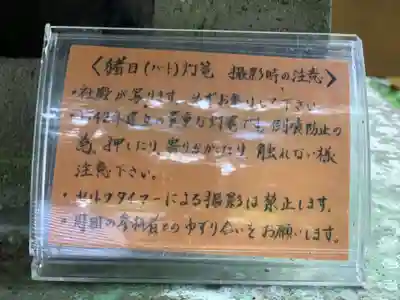 〈猪目(ハート)灯篭 撮影時の注意〉
・社殿が有ります。必ずお参りして下さい
建立の貴重な灯篭です。倒壊防止の
為、押したり、寄りかかったり、触れない様
注意下さい。
・セルフタイマーによる撮影は禁止します。
・周囲の参拝者とのゆずり合いをお願いします。